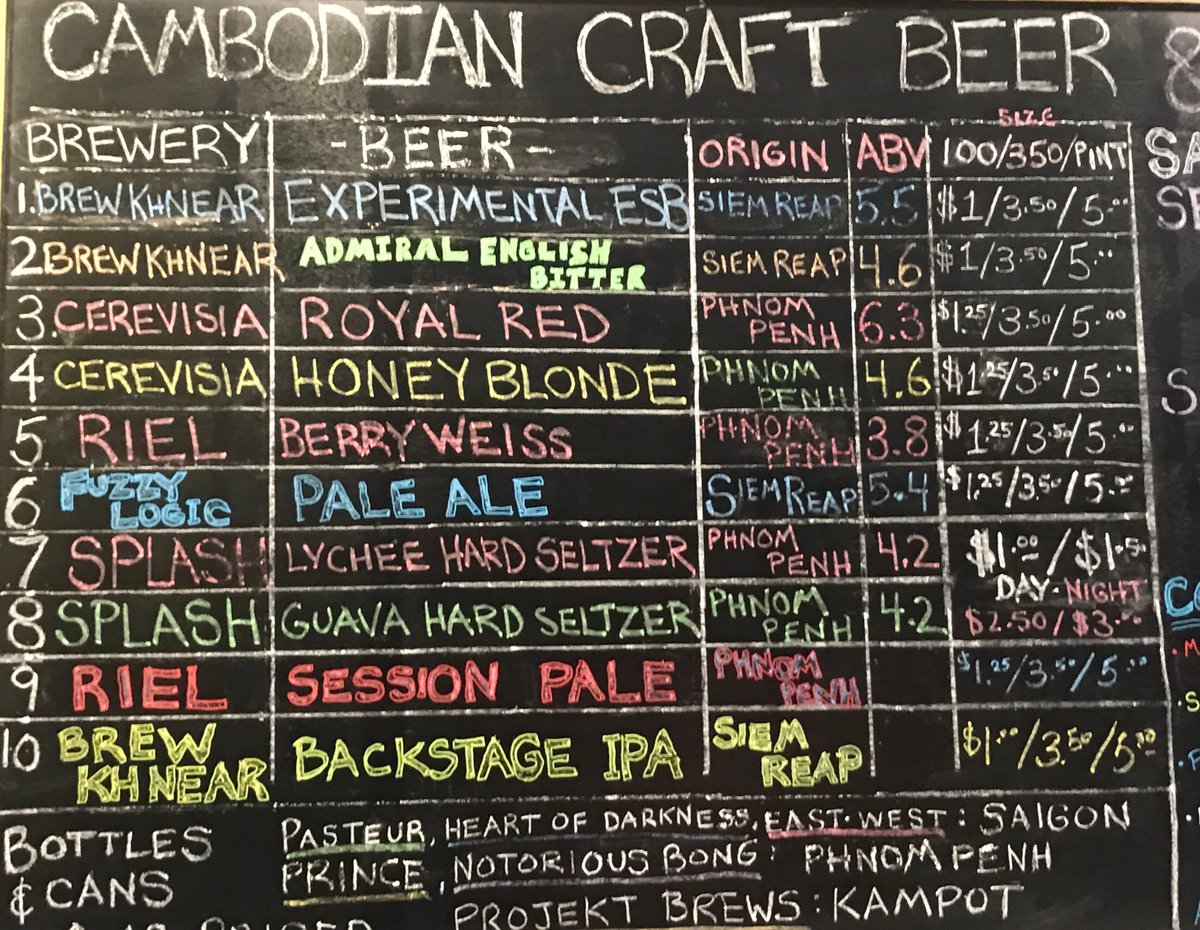 CAMBODIAN CRAFT BEER &
SIZE
BREWERY -BEER- ORIGIN ABV 100/350/PINT
1. BREW KHNEAR EXPERIMENTAL ESB SIEM REAP 5.5 $1/3.50/5.00
2 BREW KHNEAR ADMIRAL ENGLISH BITTER SIEM REAP 4.6 $1/3.50/5.00
3. CEREVISIA ROYAL RED PHNOM PENH 6.3 $1.25/3.50/5.00
4 CEREVISIA HONEY BLONDE PHNOM PENH 4.6 $1.25/3.50/5.00
5 RIEL BERRY WEISS PHNOM PENH 3.8 $1.25/3.50/5.00
6 FUZZY LOGIC PALE ALE SIEM REAP 5.4 $1.25/3.50/5.00
7 SPLASH LYCHEE HARD SELTZER PHNOM PENH 4.2 $1.00/$1.50
DAY-NIGHT
8 SPLASH GUAVA HARD SELTZER PHNOM PENH 4.2 $2.50/$3.00
9 RIEL SESSION PALE PHNOM PENH $1.25/3.50/5.00
10 BREW KHNEAR BACKSTAGE IPA SIEM REAP $1.00/3.50/5.00
BOTTLES & CANS
PASTEUR, HEART OF DARKNESS, EAST-WEST: SAIGON
PRINCE, NOTORIOUS BONG: PHNOM PENH
PROJEKT BREWS: KAMPOT